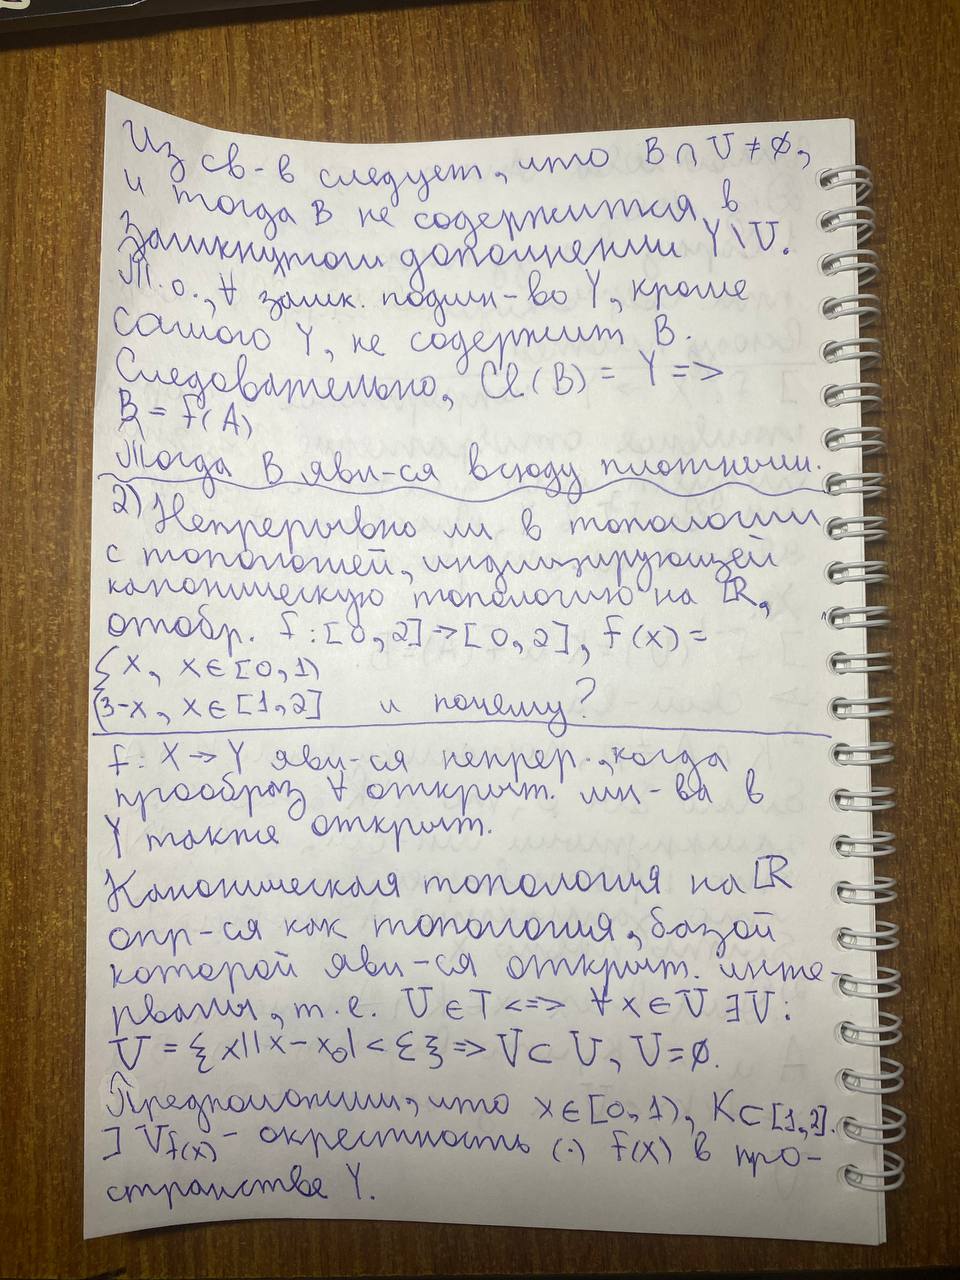 Из св-в следует, что B ∩ U ≠ ∅,
и тогда B не содержится в
замкнутом дополнении Y \ U.
Т.о., ∀ замк. подмн-во Y, кроме
самого Y, не содержит B.
Следовательно, Cl(B) = Y =>
B = f(A)
Тогда B явл-ся всюду плотным.
2) Непрерывно ли в топологии
с топологией, индуцирующей
каноническую топологию на ℝ,
отобр. f: [0,2] → [0,2], f(x) =
{ x, x ∈ [0,1)
{ 3-x, x ∈ [1,2] и почему?
f: X → Y явл-ся непрер., когда
прообраз ∀ открыт. мн-ва в
Y также открыт.
Каноническая топология на ℝ
опр-ся как топология, базой
которой явл-ся открыт. инте-
рвалы, т.е. U ∈ T <=> ∀ x ∈ U ∃ V:
V = { x | |x - x₀| < ξ } => V ⊂ U, U = ∅.
Предположим, что x ∈ [0,1), K ⊂ [1,2].
] V_f(x) - окрестность (·) f(x) в про-
странстве Y.